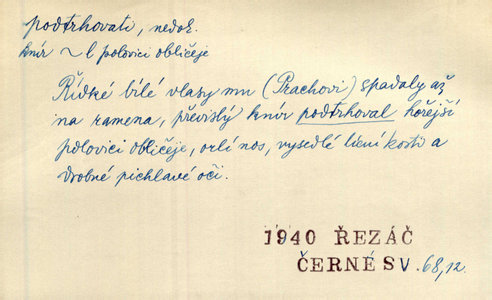 podtrhovati, nedok.
knír ~ l polovici obličeje
Řídké bílé vlasy mu (Prachovi) spadaly až
na ramena, převislý knír podtrhoval hořejší
polovici obličeje, orlí nos, vysedlé lícní kosti a
drobné pichlavé oči.
1940 ŘEZÁČ
ČERNÉ SV. 68,12.